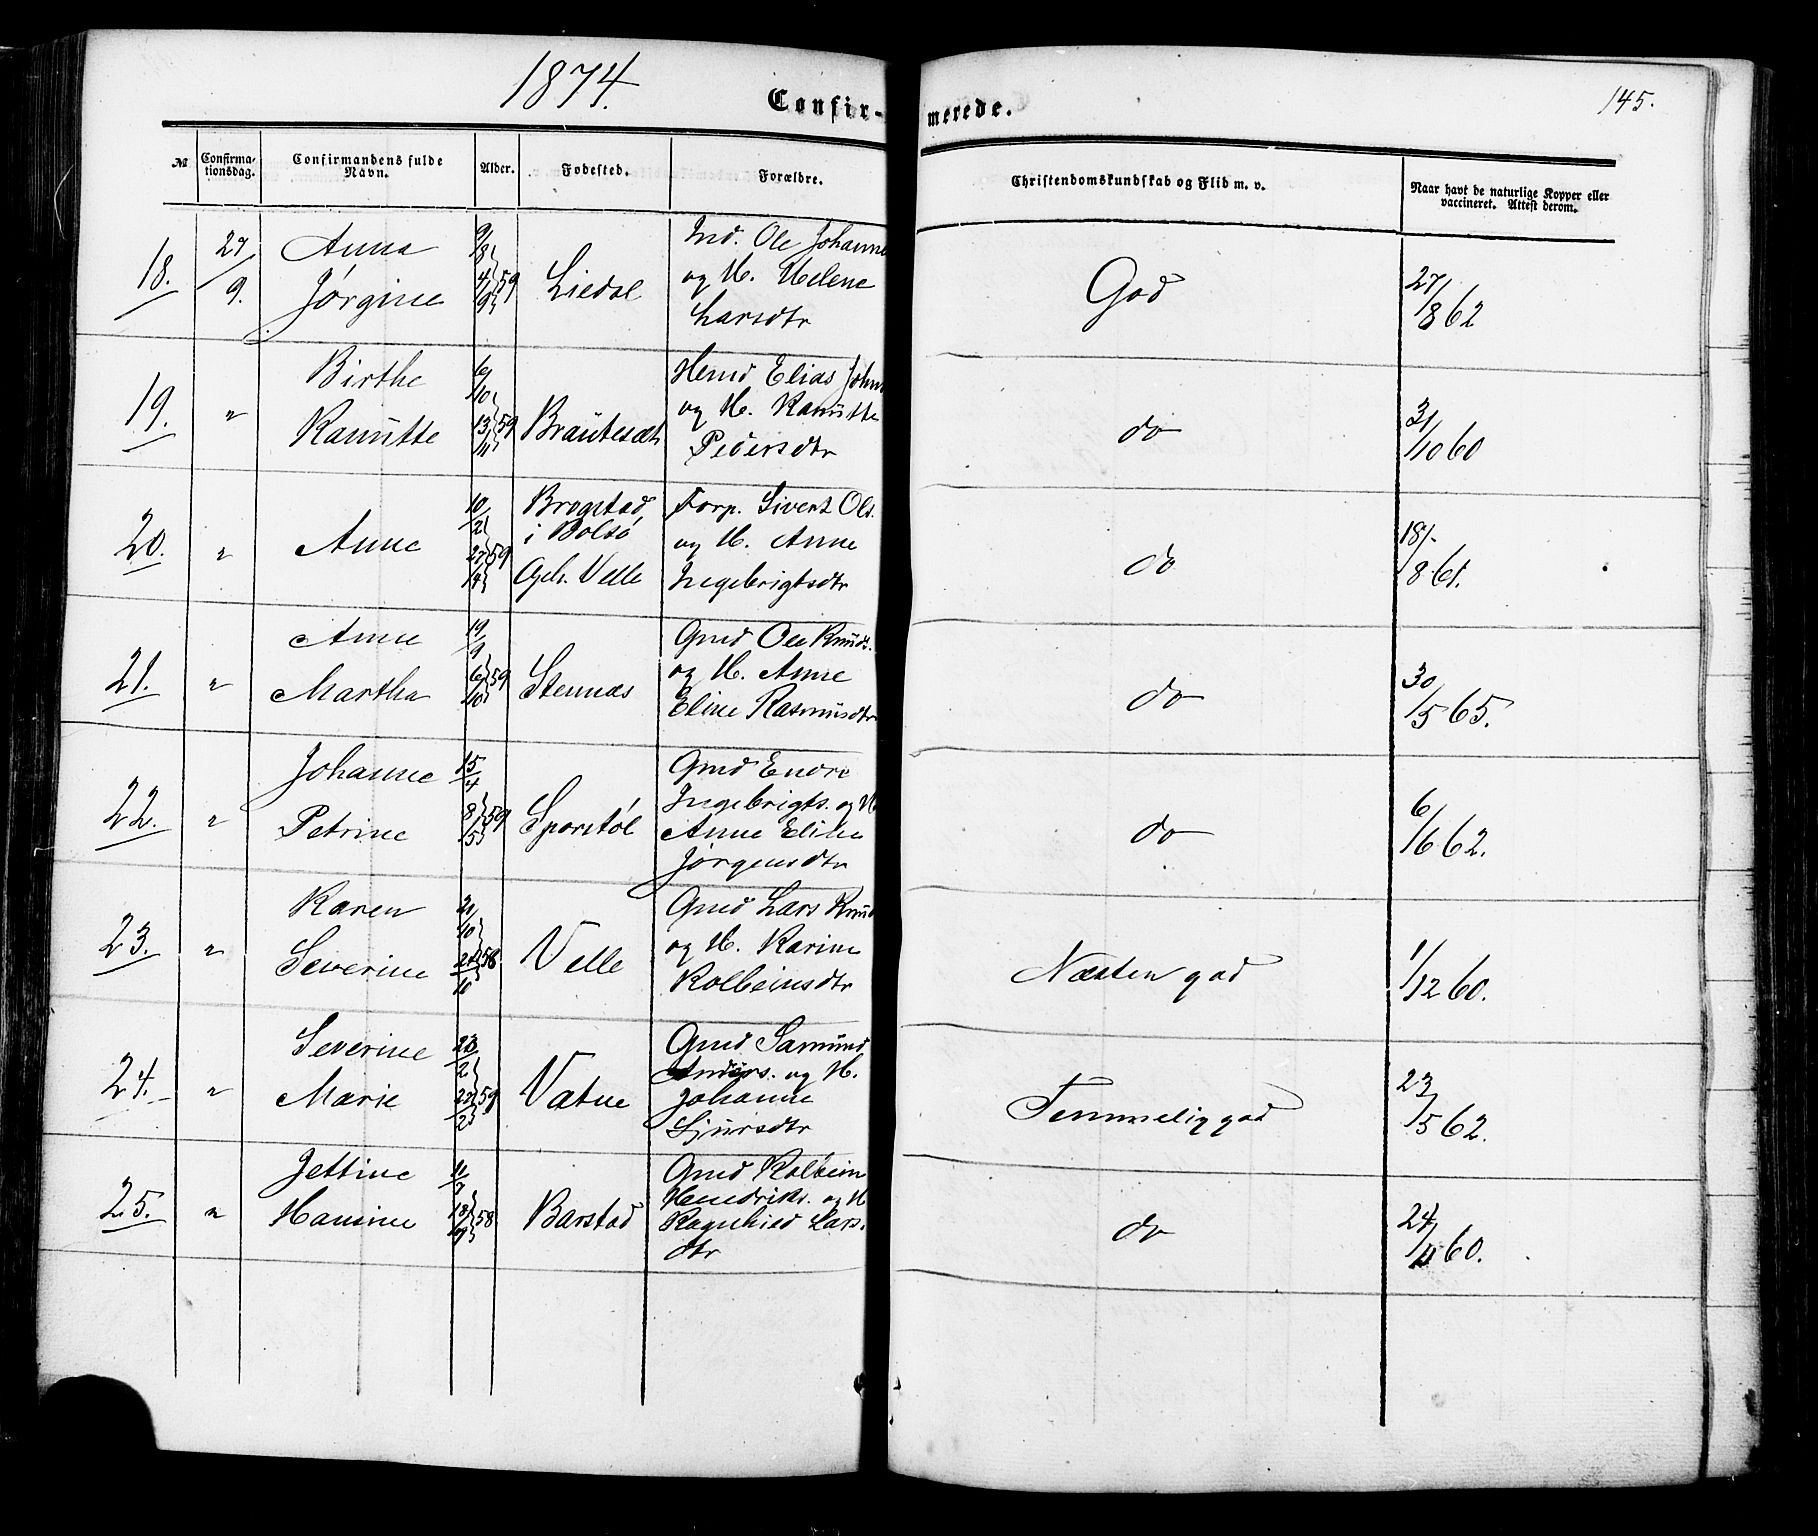 1874.
Confir-
merede.
145.
№
Confirma-
tionsdag.
Confirmandens fulde
Navn.
Alder.
Fødested.
Forældre.
Christendomskundskab og Flid m. v.
Naar havt de naturlige Kopper eller
vaccineret. Attest derom.
18.
27/9.
Anna
Jørgine
9/8 4/9 59
Liedal
Ind. Ole Johanne
og H. Helene
Larsdtr
God
27/8 62
19.
"
Birthe
Kanutte
6/10 13/11 59
Brautesæt
Hmd Elias John
og H. Kanutte
Pedersdtr
do
31/10 60
20.
"
Anne
10/2 59
Brogstad
i Bolsø
Oph. Velle
Forp. Sivert Ols.
og H. Anne
Ingebrigtsdtr
do
18/8 61.
21.
"
Anne
Martha
19/9 6/10 59
Stennæs
Gmd Ole Knuds.
og H. Anne
Eline Rasmusdtr
do
30/5 65.
22.
"
Johanne
Petrine
15/4 8/5 59
Sporstøl
Gmd Endre
Ingebrigts. og H
Anne Eline
Jørgensdtr
do
6/6 62.
23.
"
Karen
Severine
58
Velle
Gmd Lars Knud
og H. Karine
Kolbeinsdtr
Næsten god
1/12 60.
24.
"
Severine
Marie
23/2 59
Vatne
Gmd Samund
Anders. og H.
Johanne
Sjursdtr
Temmelig god
23/5 62.
25.
"
Jettine
Hansine
18/9 58
Barstad
Gmd Kolbein
Hendriks. og H
Ragnhild Lars.
dtr
do
60.